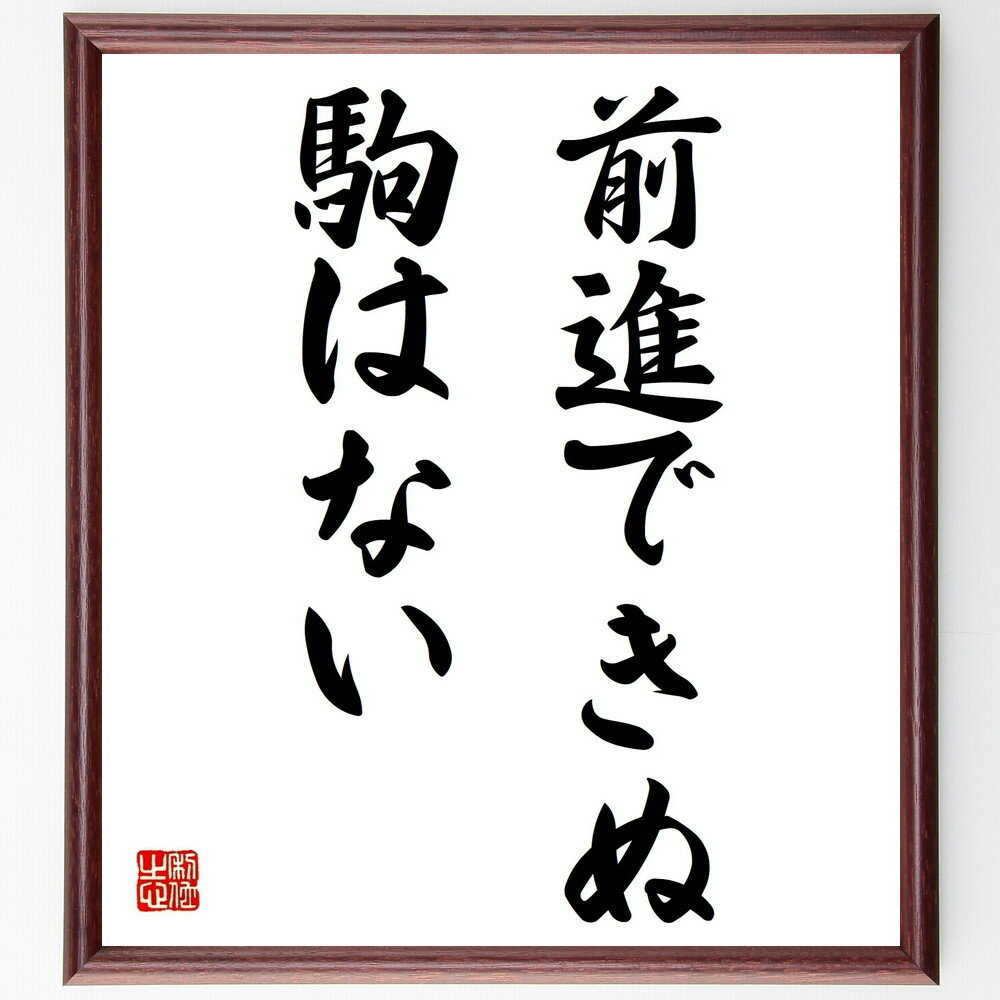 前進できぬ
駒はない